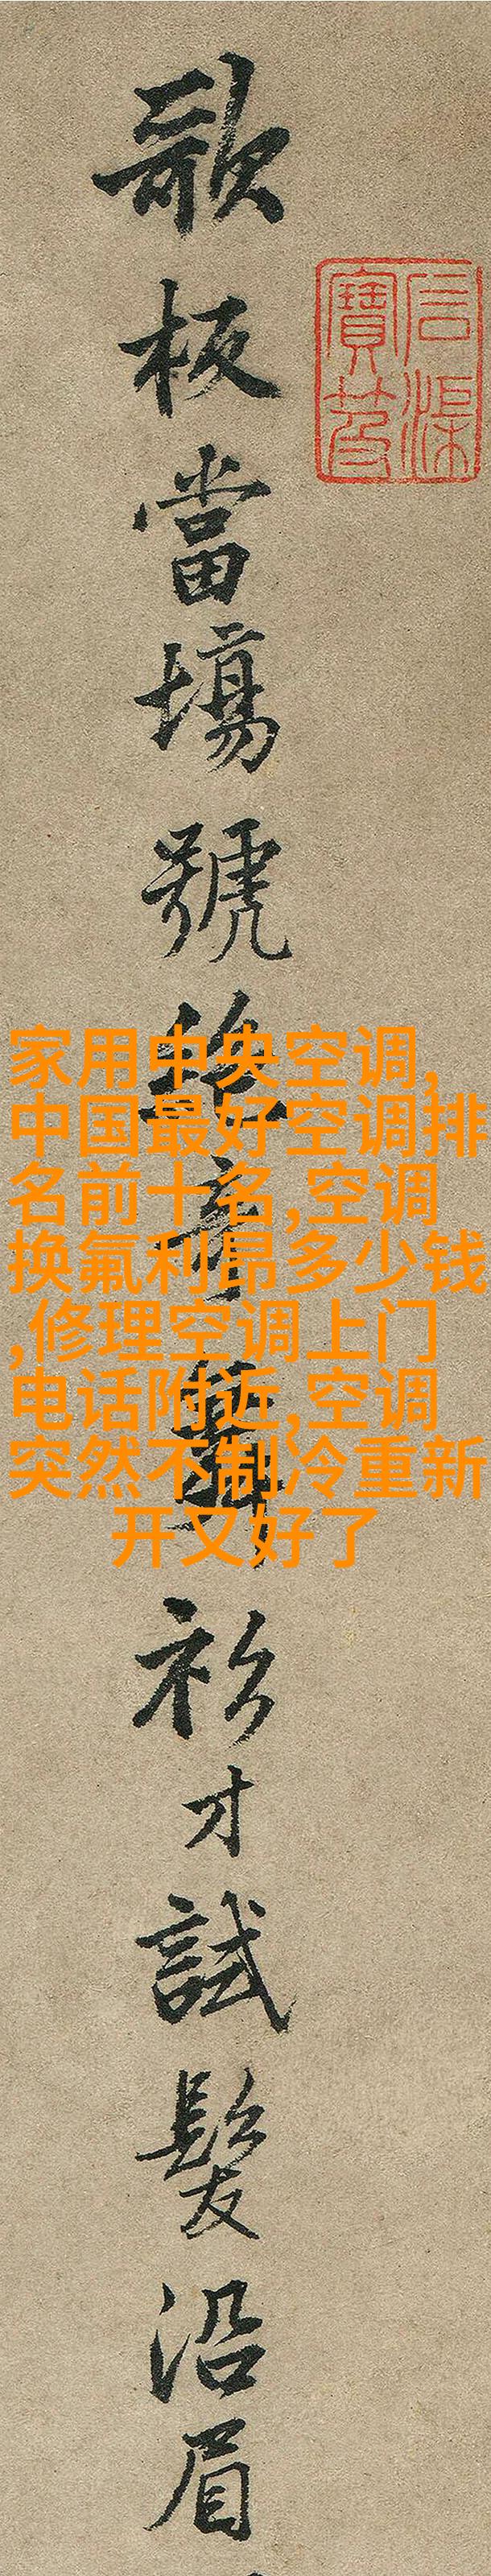 石渠
寶笈
歌板當場號衫才試髮沿眉
家用中央空调,
中国最好空调排
名前十名,空调
换氟利昂多少钱
,修理空调上门
电话附近,空调
突然不制冷重新
开又好了